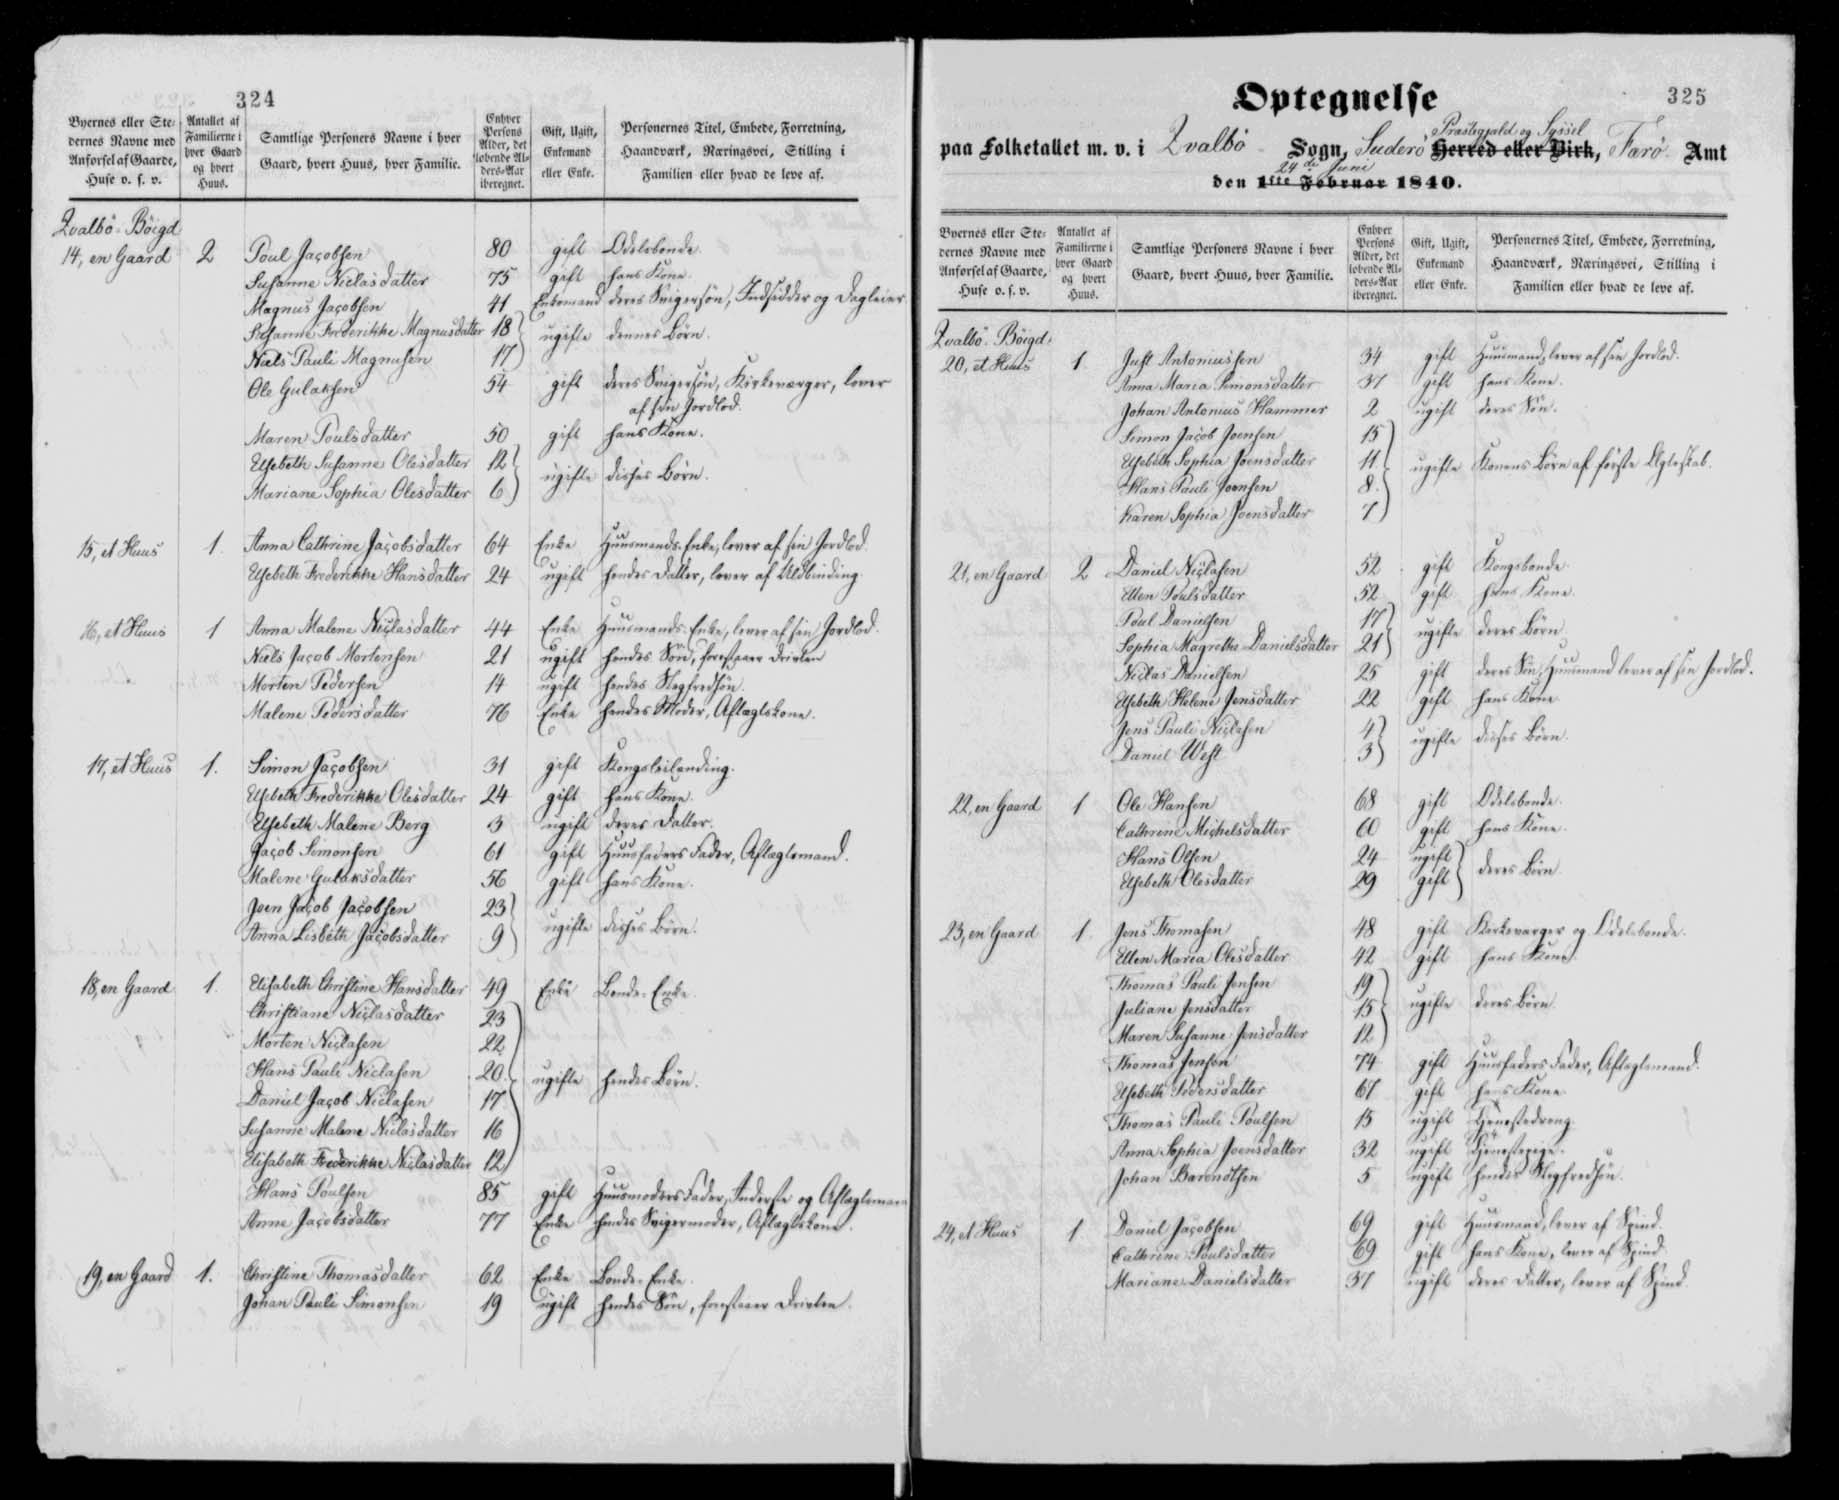 324
Byernes eller Ste-
dernes Navne med
Anførsel af Gaarde,
Huse o. s. v.
Antallet af
Familierne i
hver Gaard
og hvert
Huus.
Samtlige Personers Navne i hver
Gaard, hvert Huus, hver Familie.
Enhver
Persons
Alder, det
løbende Al-
ders-Aar
iberegnet.
Gift, Ugift,
Enkemand
eller Enke.
Personernes Titel, Embede, Forretning,
Haandværk, Næringsvei, Stilling i
Familien eller hvad de leve af.
Qvalbö-Böigd
14, en Gaard 2 Poul Jacobsen 80 gift Odelsbonde.
Susanne Niclasdatter 75 gift hans Kone.
Magnus Jacobsen 41 Enkemand deres Svigersön, Indsidder og Dagleier
Susanne Frederikke Magnusdatter 18 ugifte dennes Börn.
Niels Pauli Magnusen 17
Ole Gulaksen 54 gift deres Svigersön, Kirkeværger, lever
af sin Jordlod.
Maren Poulsdatter 50 gift hans Kone.
Elsebeth Susanne Olesdatter 12 ugifte disses Börn.
Mariane Sophia Olesdatter 6
15, et Huus 1. Anna Cathrine Jacobsdatter 64 Enke Huusmands-Enke, lever af sin Jordlod.
Elsebeth Frederikke Hansdatter 24 ugift hendes Datter, lever af Uldbinding.
16, et Huus 1 Anna Malene Niclasdatter 44 Enke Huusmands-Enke, lever af sin Jordlod.
Niels Jacob Mortensen 21 ugift hendes Sön, forestaaer Drivten
Morten Pedersen 14 ugift hendes Slegfredsön.
Malene Pedersdatter 76 Enke hendes Moder, Aftægtskone.
17, et Huus 1. Simon Jacobsen 31 gift Kongsleilænding.
Elsebeth Frederikke Olesdatter 24 gift hans Kone.
Elsebeth Malene Berg 3 ugift deres Datter.
Jacob Simonsen 61 gift Huusfaders Fader, Aftægtsmand.
Malene Gulaksdatter 56 gift hans Kone.
Joen Jacob Jacobsen 23 ugifte disses Börn.
Anna Lisbeth Jacobsdatter 9
18, en Gaard 1. Elisabeth Christine Hansdatter 49 Enke Bonde-Enke.
Christiane Niclasdatter 23
Morten Niclasen 22
Hans Pauli Niclasen 20 ugifte hendes Börn.
Daniel Jacob Niclasen 17
Susanne Malene Niclasdatter 16
Elisabeth Frederikke Niclasdatter 12
Hans Poulsen 85 gift Huusmoders Fader, Inderste og Aftægtsmand
Anne Jacobsdatter 77 Enke hendes Svigermoder, Aftægtskone.
19, en Gaard 1. Christine Thomasdatter 62 Enke Bonde-Enke.
Johan Pauli Simonsen 19 ugift hendes Sön, forestaaer Drivten.
325
Optegnelse
Præstegjæld og Syssel
paa Folketallet m. v. i Qvalbö Sogn, Suderö Herred eller Birk, Færö Amt
24de Juni
den 1ste Februar 1840.
Byernes eller Ste-
dernes Navne med
Anførsel af Gaarde,
Huse o. s. v.
Antallet af
Familierne i
hver Gaard
og hvert
Huus.
Samtlige Personers Navne i hver
Gaard, hvert Huus, hver Familie.
Enhver
Persons
Alder, det
løbende Al-
ders-Aar
iberegnet.
Gift, Ugift,
Enkemand
eller Enke.
Personernes Titel, Embede, Forretning,
Haandværk, Næringsvei, Stilling i
Familien eller hvad de leve af.
Qvalbö-Böigd.
20, et Huus 1 Just Antoniussen 34 gift Huusmand, lever af sin Jordlod.
Anna Maria Simonsdatter 37 gift hans Kone.
Johan Antonius Hammer 2 ugift deres Sön.
Simon Jacob Joensen 15
Elsebeth Sophia Joensdatter 11 ugifte Konens Börn af förste Ægteskab.
Hans Pauli Joensen 8
Karen Sophia Joensdatter 7
21, en Gaard 2 Daniel Niclasen 52 gift Kongsbonde.
Ellen Poulsdatter 52 gift hans Kone.
Poul Danielsen 17 ugifte deres Börn
Sophia Magrethe Danielsdatter 21
Niclas Danielsen 25 gift deres Sön, Huusmand lever af sin Jordlod.
Elsebeth Helene Jensdatter 22 gift hans Kone
Jens Pauli Niclasen 4 ugifte disses Börn.
Daniel West 3
22, en Gaard 1 Ole Hansen 68 gift Odelsbonde.
Cathrine Michelsdatter 60 gift hans Kone.
Hans Olsen 24 ugift deres Börn
Elsebeth Olesdatter 29 gift
23, en Gaard 1. Jens Thomasen 48 gift Kirkeværger og Odelsbonde.
Ellen Maria Olesdatter 42 gift hans Kone.
Thomas Pauli Jensen 19
Juliane Jensdatter 15 ugifte deres Börn.
Maren Susanne Jensdatter 12
Thomas Jensen 74 gift Huusfaders Fader, Aftægtsmand.
Elsebeth Pedersdatter 67 gift hans Kone
Thomas Pauli Poulsen 15 ugift Tjenestedreng.
Anna Sophia Joensdatter 32 ugift Tjenestepige.
Johan Barendtsen 5 ugift hendes Slegfredsön.
24, et Huus 1 Daniel Jacobsen 69 gift Huusmand, lever af Spind.
Cathrine Poulsdatter 69 gift hans Kone, lever af Spind.
Mariane Danielsdatter 37 ugift deres Datter, lever af Spind.